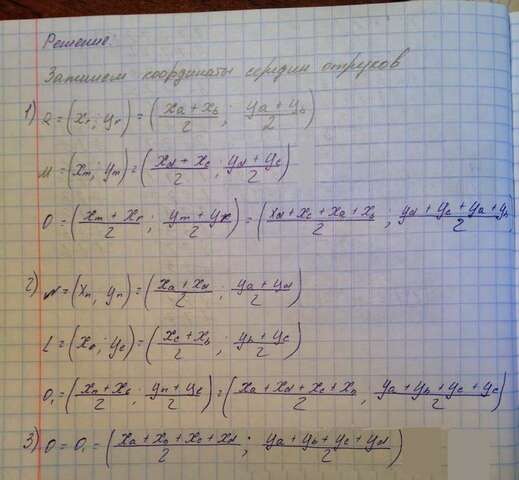 Решение:
Запишем координаты середин отрезков
1) R = (xr; yr) = ((xa + xb)/2; (ya + yb)/2)
M = (xm; ym) = ((xd + xc)/2; (yd + yc)/2)
O = ((xm + xr)/2; (ym + yr)/2) = ((xd + xc + xa + xb)/2; (yd + yc + ya + yb)/2
2) N = (xn; yn) = ((xa + xd)/2; (ya + yd)/2)
L = (xe; ye) = ((xc + xb)/2; (yb + yc)/2)
O₁ = ((xn + xe)/2; (yn + ye)/2) = ((xa + xd + xc + xb)/2; (ya + yb + yc + yc)/2)
3) O = O₁ = ((xa + xb + xc + xd)/2; (ya + yb + yc + yd)/2)